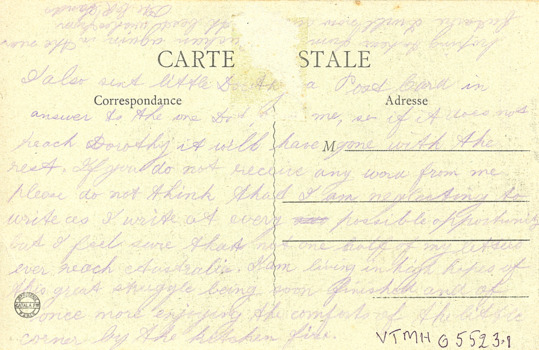 CARTE POSTALE
I also sent little Doroth a Post Card in
Correspondance
Adresse
answer to the one Dot me, so if it does not
reach Dorothy it will have gone with the
M
rest. If you do not receive any word from me
please do not think that I am neglecting to
write as I write at every possible opportunity
but I feel sure that not one half of my letters
ever reach Australia. I am living in high hopes of
this great struggle being soon finished and of
once more enjoying the comfort of the little
corner by the kitchen fire.
VTMH G5523.1